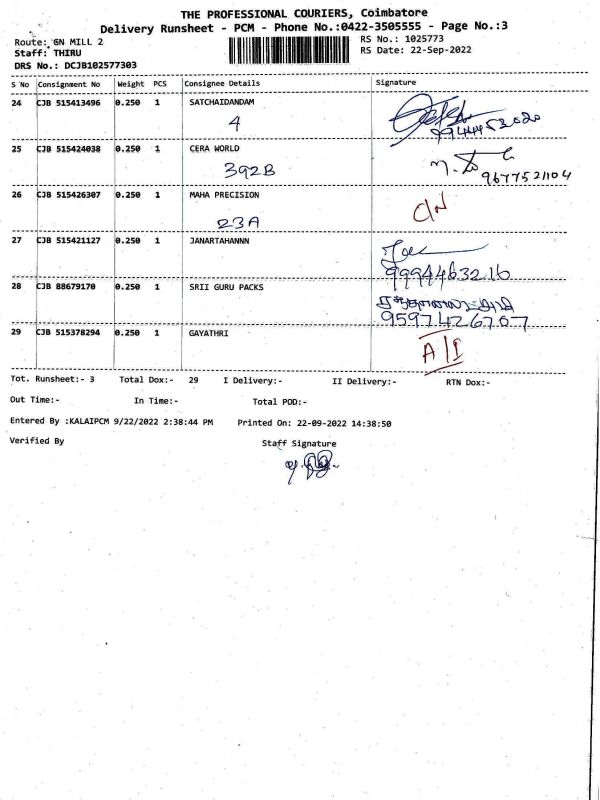 THE PROFESSIONAL COURIERS, Coimbatore
Delivery Runsheet - PCM - Phone No.:0422-3505555 - Page No.:3
Route: GN MILL 2 RS No.: 1025773
Staff: THIRU RS Date: 22-Sep-2022
DRS No.: DCJB102577303
S No Consignment No Weight PCS Consignee Details Signature
24 CJB 515413496 0.250 1 SATCHAIDANDAM
4
25 CJB 515424038 0.250 1 CERA WORLD
392B 9677521104
26 CJB 515426307 0.250 1 MAHA PRECISION C/N
23A
27 CJB 515421127 0.250 1 JANARTAHANNN
9994463216
28 CJB 88679170 0.250 1 SRII GURU PACKS
9597426707
29 CJB 515378294 0.250 1 GAYATHRI
A/I
Tot. Runsheet:- 3 Total Dox:- 29 I Delivery:- II Delivery:- RTN Dox:-
Out Time:- In Time:- Total POD:-
Entered By :KALAIPCM 9/22/2022 2:38:44 PM Printed On: 22-09-2022 14:38:50
Verified By Staff Signature